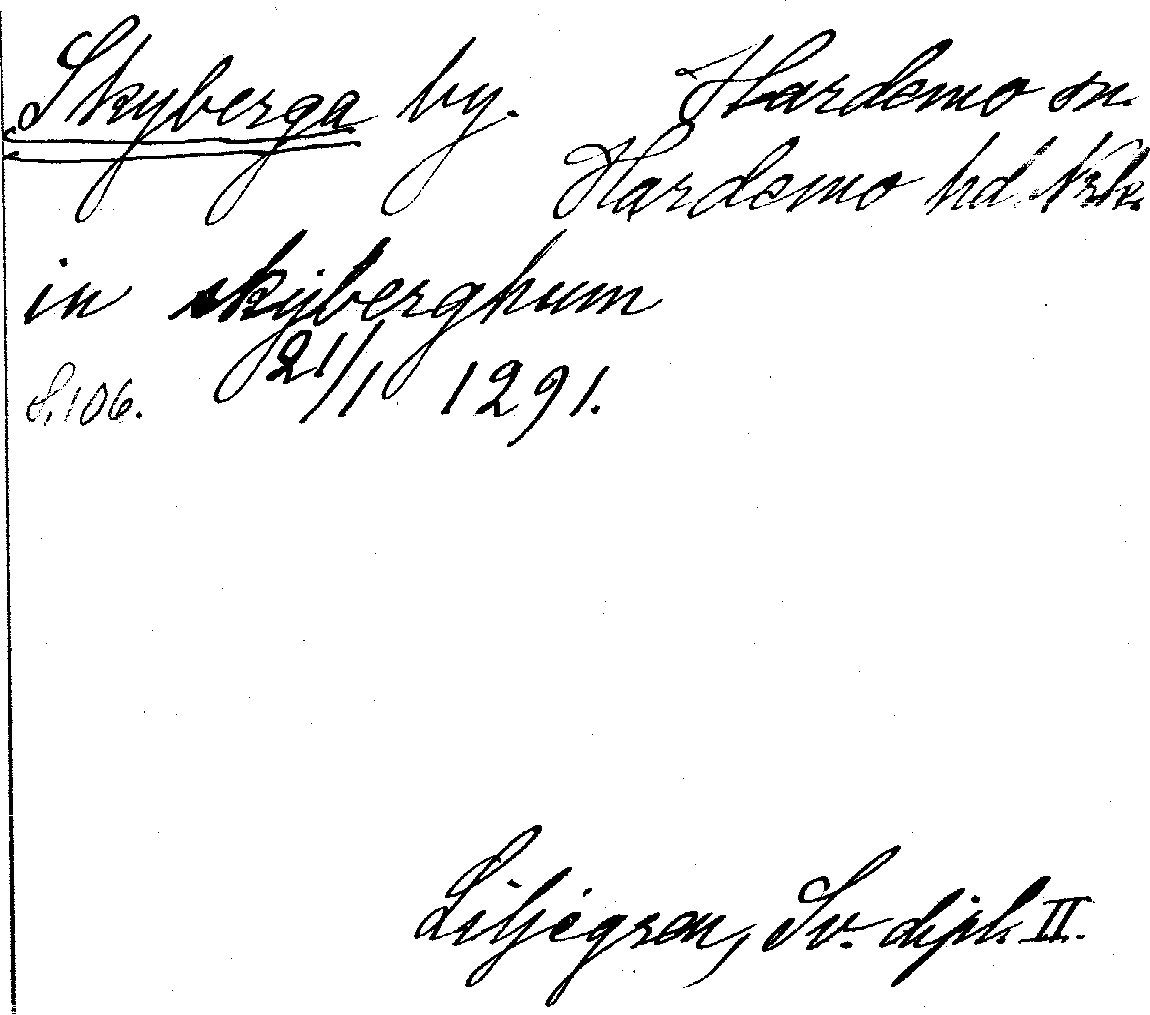 Skyberga by. Hardemo sn.
Hardemo hd. Nrk.
in skyberghum
S. 106. 21/1 1291.
Liljegren, Sv. dipl. II.